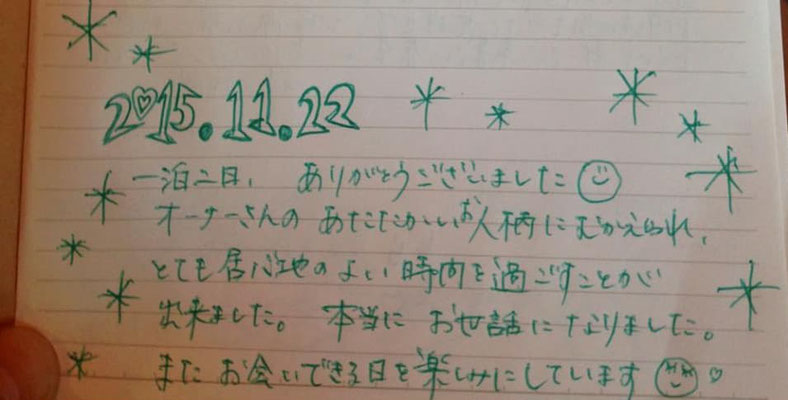 2015.11.22
一泊二日、ありがとうございました
オーナーさんのあたたかいお人柄にむかえられ、
とても居心地のよい時間を過ごすことが
出来ました。本当にお世話になりました。
またお会いできる日を楽しみにしています